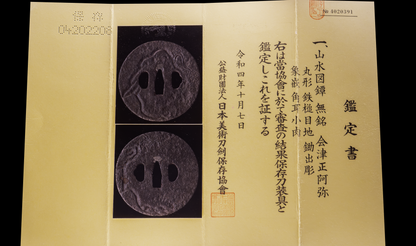 保存
04202208
№ 4020391
鑑定書
一、山水図鐔 無銘 会津正阿弥
丸形 鉄槌目地 鋤出彫
象嵌 角耳小肉
右は當協會に於て審査の結果保存刀装具と
鑑定しこれを証する
令和四年十月七日
公益財団法人日本美術刀剣保存協會